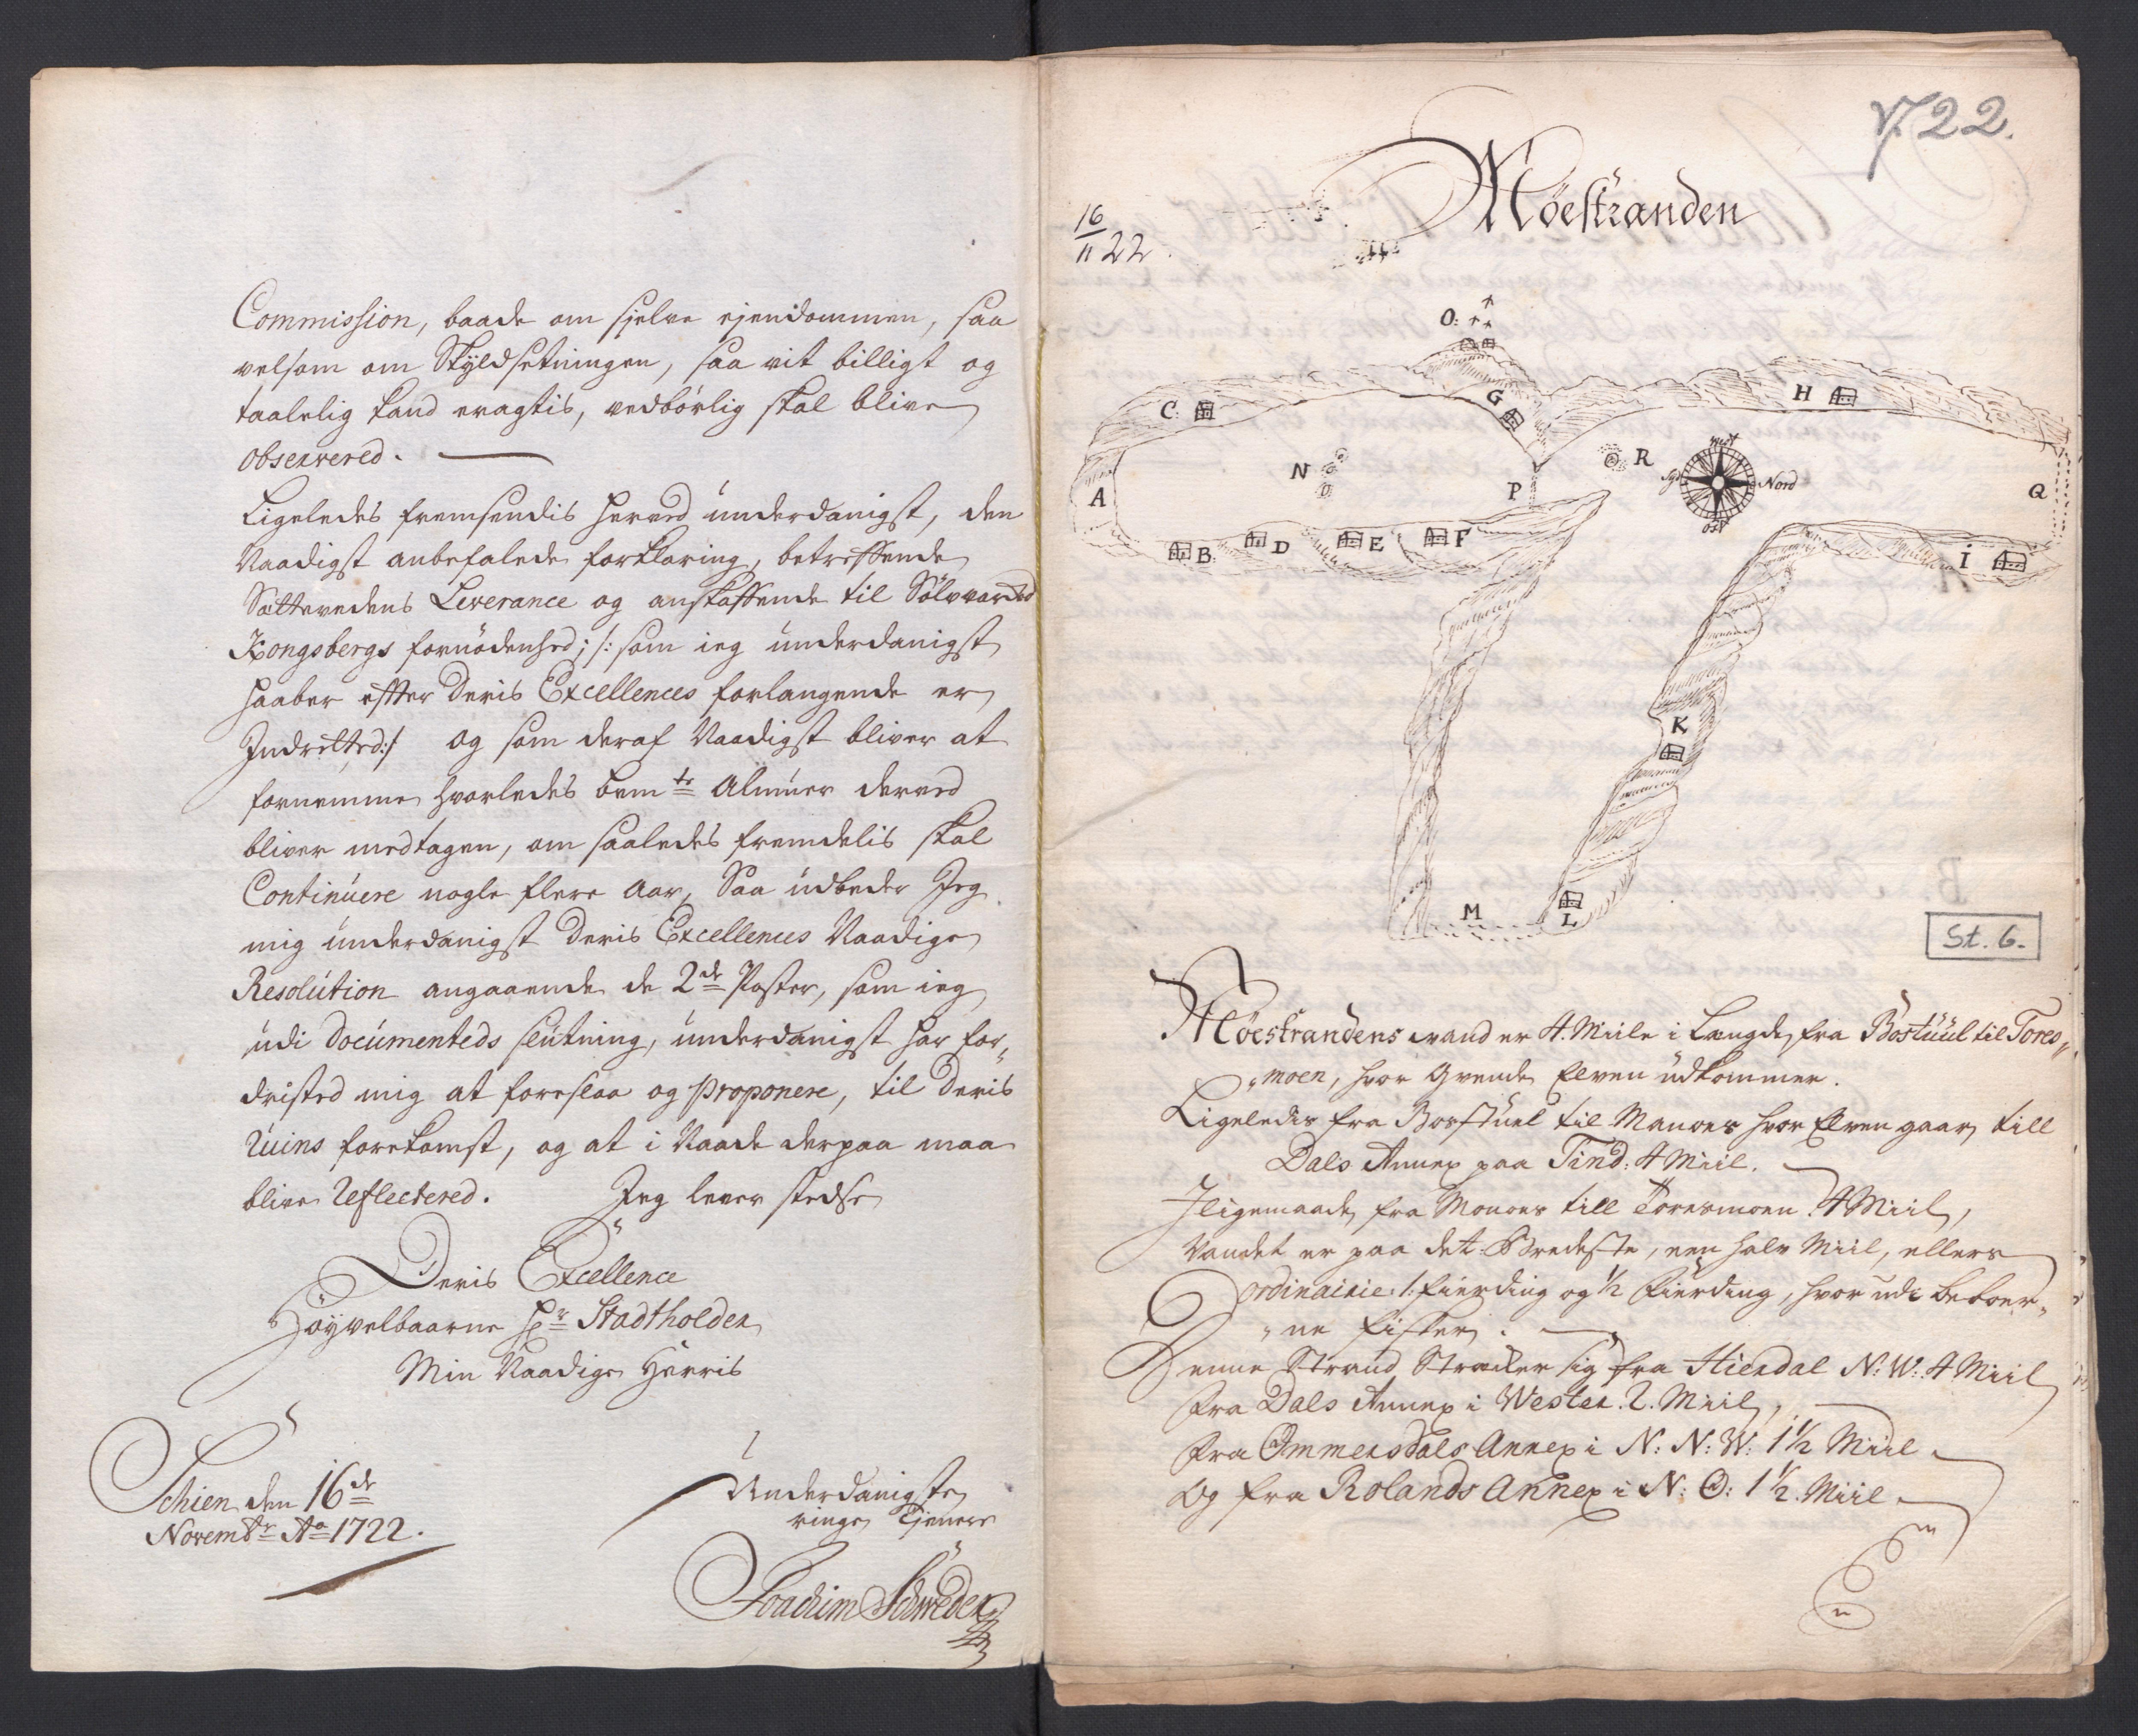 Commission, baade om sielve eiendommen, saa
velsom om Skyldsetningen, saa vit billigt og
taalelig kand eragtis, vedbørlig skal blive
observered.
Ligeledes fremsendis herved underdanigst, den
Naadigst anbefalede forklaring, betreffende
Sættevedens Leverance og anskaffende til Sølvverked
Kongsbergs fornødenhed; /: som ieg underdanigst
haaber effter Deris Excellences forlangende er
Indretted :/ og som deraf Naadigst bliver at
fornemme hvorledes bemte Almuer derved
bliver medtagen, om saaledes fremdelis skal
Continuere nogle flere Aar, Saa udbeder Jeg
mig underdanigst Deris Excellences Naadige
Resolution angaaende de 2de Poster, som ieg
udi Documenteds slutning, underdanigst har for„
dristed mig at foreslaa og proponere, til Deris
Ruins forekomst, og at i Naade derpaa maa
blive Reflectered. Jeg lever stedse
Deris Excellence
Høyvelbaarne Hr Stadtholder
Min Naadige Herris
Schien den 16de
Novembr Ao 1722.
Underdanigste
ringe Tienere
Joachim Schweder
1722.
16/11 22.
Møestranden
O:
C:
G
H
N
R
West
Syd
Nord
Ost
A
P
Q
B:
D
E
F
I
K
M
L
St. 6.
Møestrandens vand er 4. Miile i Længde, fra Bostuul til Tores„
„moen, hvor Qvende Elven udkommer.
Ligeledis fra Borstuul til Manoer hvor Elven gaar till
Dals Annex paa Tind: 4 Miil.
I ligemaade fra Monoer till Toresmoen 4 Miil,
Vandet er paa det Bredeste, een halv Miil, ellers
ordinairie 1. fierding og 1/2 fierding, hvor udi beboer„
„ne fisker.
Denne Strand Strecker sig fra Hierdal N: W: 4 Miil
fra Dals Annex i Wester. 2. Miil,
fra Ommensdals Annex i N: N: W: 1 1/2 Miil
og fra Rolands Annex i N: O: 1 1/2. Miil